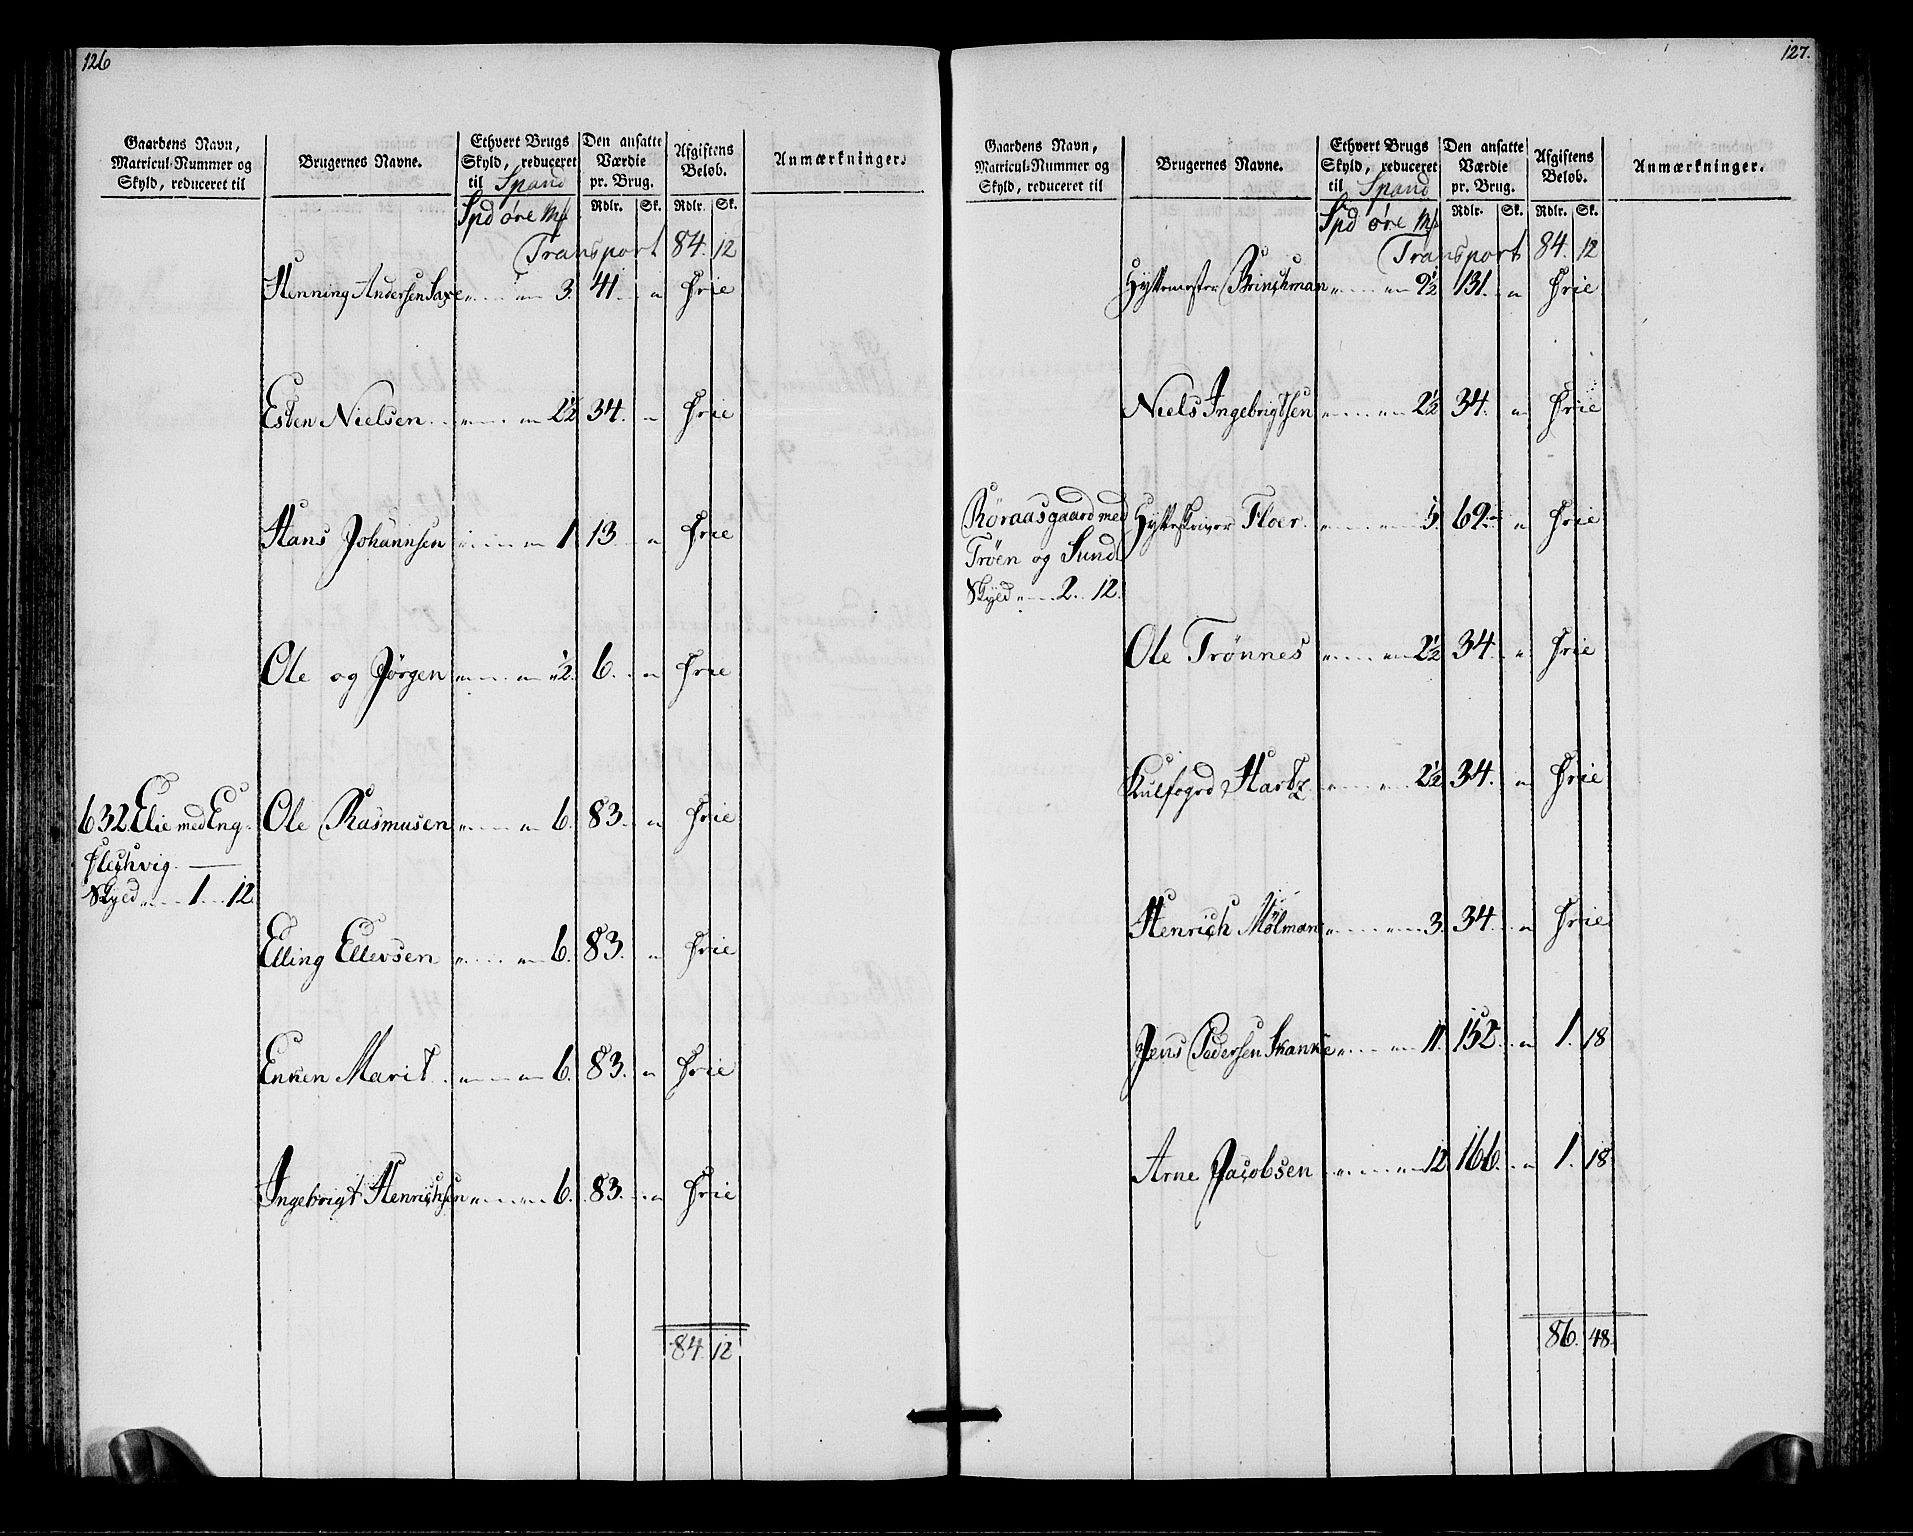 126
Gaardens Navn,
Matricul-Nummer og
Skyld, reduceret til
Brugernes Navne.
Ethvert Brugs
Skyld, reduceret
til Spand
Spd øre Mk
Den ansatte
Værdie
pr. Brug.
Rdlr. Sk.
Afgiftens
Beløb.
Rdlr. Sk.
Anmærkninger.
Transport 84. 12
Henning Andersen Saxe 3. 41. " frie
Esten Nielsen 2½ 34. " frie
Hans Johannsen 1. 13 " frie
Ole og Jörgen ½ 6. " frie
632. Elie med Eng- Ole Rasmusen 6. 83. " frie
flechvig
Skyld 1. 12.
Elling Ellevsen 6. 83. " frie
Enken Marit 6. 83. " frie
Ingebrigt Henrichsen 6. 83. " frie
84. 12
127.
Gaardens Navn,
Matricul-Nummer og
Skyld, reduceret til
Brugernes Navne.
Ethvert Brugs
Skyld, reduceret
til Spand
Spd øre Mk
Den ansatte
Værdie
pr. Brug.
Rdlr. Sk.
Afgiftens
Beløb.
Rdlr. Sk.
Anmærkninger.
Transport 84. 12
Hyttemester Brinchman 9½ 131. " frie
Niels Ingebrigtsen 2½ 34. " frie
Röraasgaard med Hytteskriver Floer 5 69. " frie
Tröen og Sund
Skyld 2. 12.
Ole Trönnes 2½ 34. " frie
Kulfogd Hartz 2½ 34. " frie
Henrich Mölman 3. 34. " frie
Jens Pedersen Skanke 11. 152. " 1. 18
Arne Jacobsen 12 166. " 1. 18.
86. 48.